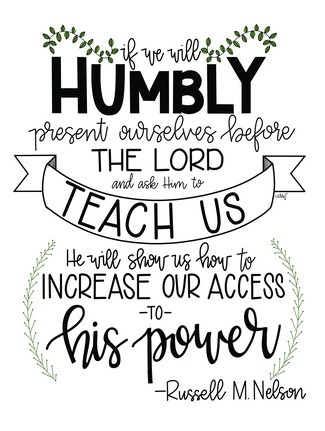 if we will
HUMBLY
present ourselves before
THE LORD
and ask Him to
TEACH US
He will show us how to
INCREASE OUR ACCESS
-TO-
his power
-Russell M. Nelson